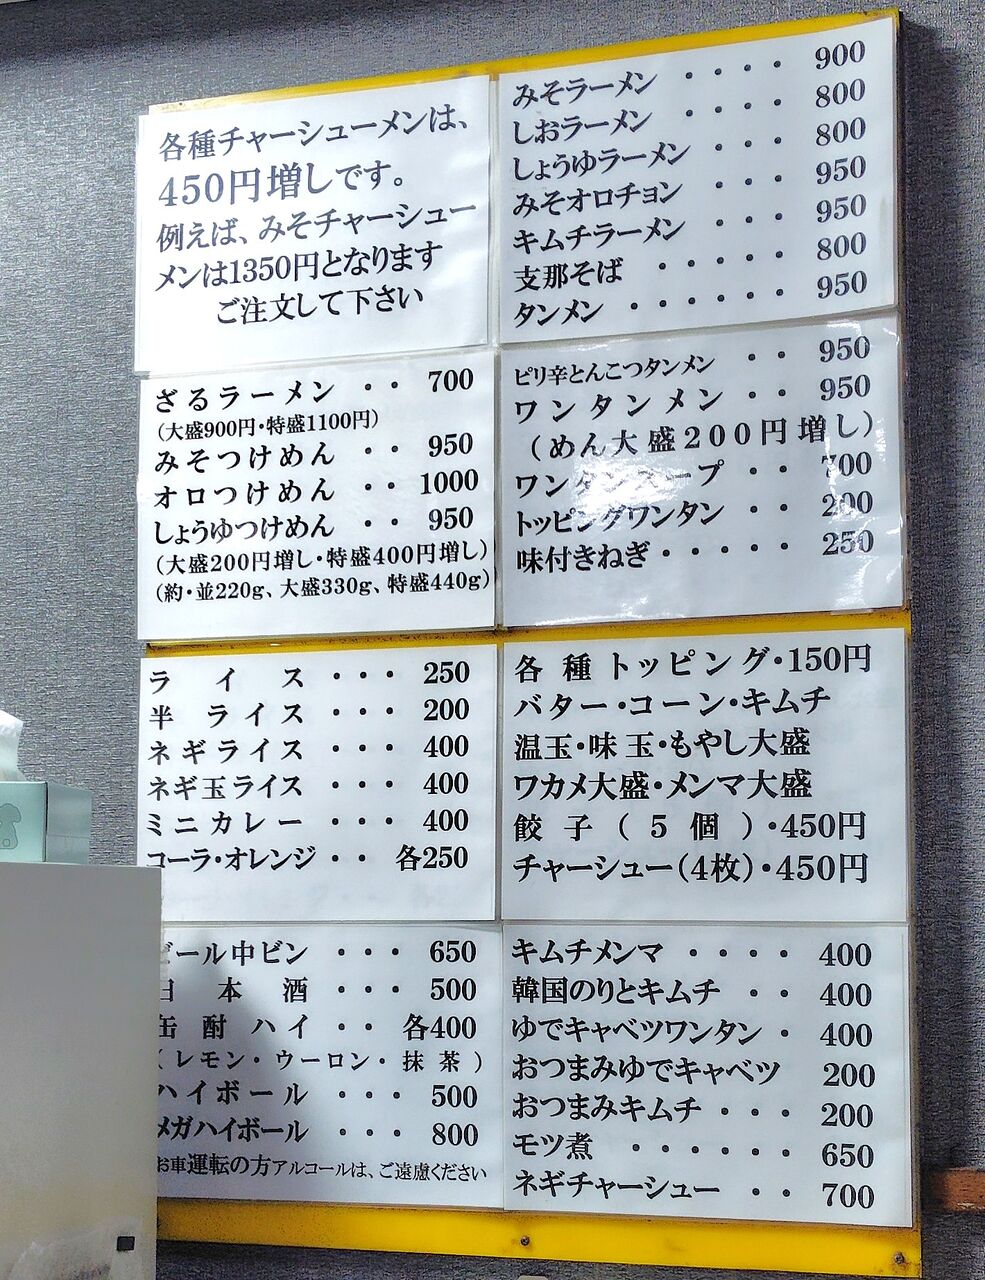 各種チャーシューメンは、
450円増しです。
例えば、みそチャーシュー
メンは1350円となります
ご注文して下さい
みそラーメン ・・・・ 900
しおラーメン ・・・・ 800
しょうゆラーメン ・・・ 800
みそオロチョン ・・・ 950
キムチラーメン ・・・ 950
支那そば ・・・・・ 800
タンメン ・・・・・・ 950
ざるラーメン ・・ 700
(大盛900円・特盛1100円)
みそつけめん ・・ 950
オロつけめん ・・ 1000
しょうゆつけめん ・・ 950
(大盛200円増し・特盛400円増し)
(約・並220g、大盛330g、特盛440g)
ピリ辛とんこつタンメン ・・ 950
ワンタンメン ・・ 950
(めん大盛200円増し)
ワンタンスープ ・・ 700
トッピングワンタン ・・ 200
味付きねぎ・・・・・ 250
ライス ・・・ 250
半ライス ・・・ 200
ネギライス ・・・ 400
ネギ玉ライス ・・・ 400
ミニカレー ・・・ 400
コーラ・オレンジ ・・ 各250
各種トッピング・150円
バター・コーン・キムチ
温玉・味玉・もやし大盛
ワカメ大盛・メンマ大盛
餃子(5個)・450円
チャーシュー(4枚)・450円
ビール中ビン ・・・ 650
日本酒 ・・・ 500
缶酎ハイ ・・ 各400
(レモン・ウーロン・抹茶)
ハイボール ・・・ 500
メガハイボール ・・・ 800
お車運転の方アルコールは、ご遠慮ください
キムチメンマ ・・・・ 400
韓国のりとキムチ ・・ 400
ゆでキャベツワンタン ・ 400
おつまみゆでキャベツ 200
おつまみキムチ ・・・ 200
モツ煮 ・・・・・・ 650
ネギチャーシュー ・・ 700